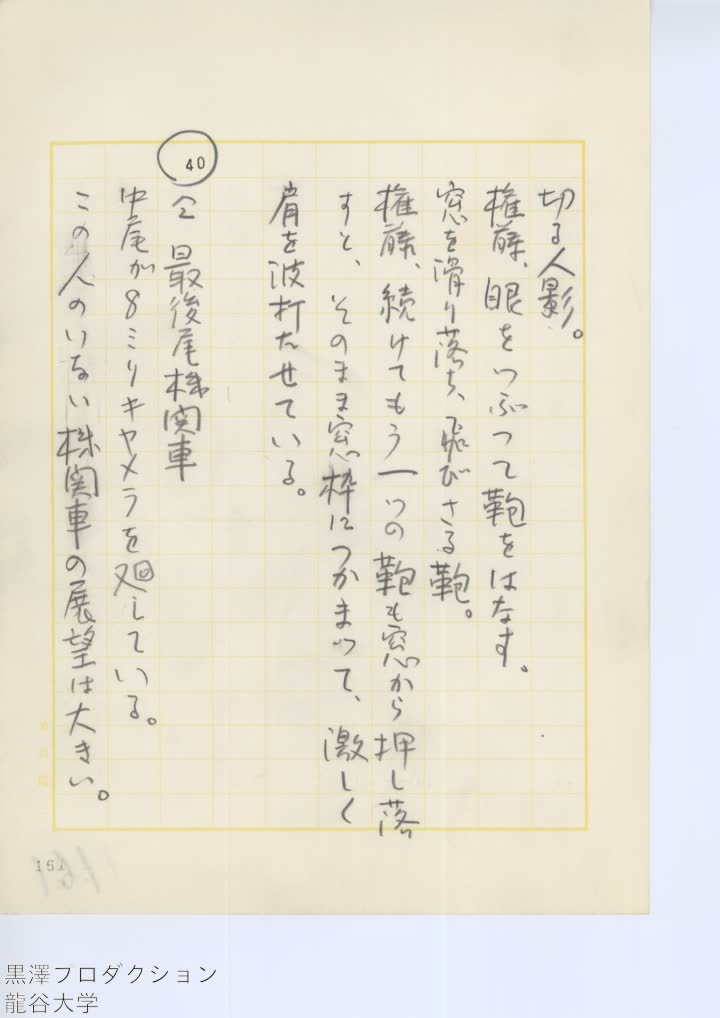 切る人影。
権藤、眼をつぶって鞄をはなす。
窓を滑り落ち、飛びさる鞄。
権藤、続けてもう一つの鞄も窓から押し落
すと、そのまま窓枠につかまって、激しく
肩を波打たせている。
40
仝 最後尾機関車
中尾が8ミリキャメラを廻している。
この人のいない機関車の展望は大きい。
161
黒澤プロダクション
龍谷大学